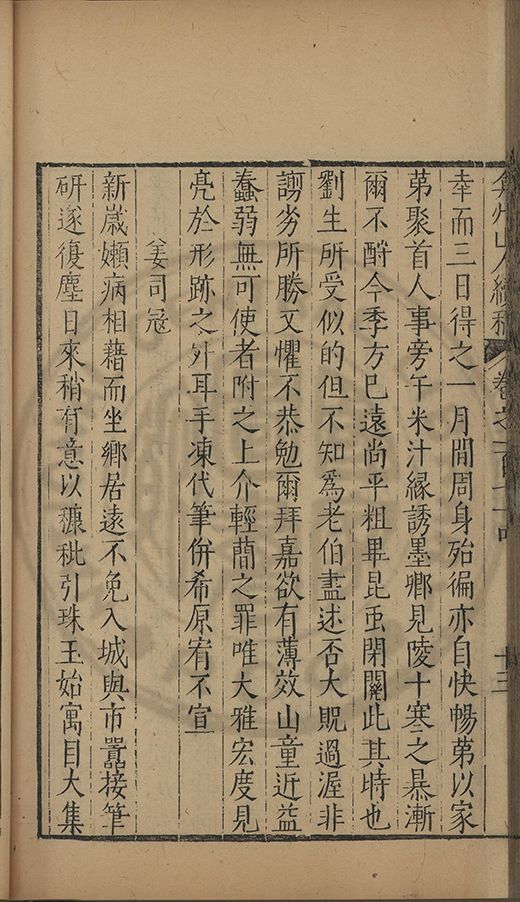 弇州山人續稿 卷之一百 十三
幸而三日得之一月閒周身殆徧亦自快暢第以家
第聚首人事旁午米汁緣誘墨鄉見陵十寒之暴漸
爾不酧今季方已遠尚平粗畢昆䖝閉關此其時也
劉生所受似的但不知爲老伯盡述否大貺過渥非
謭劣所勝又懼不恭勉爾拜嘉欲有薄效山童近益
蠢弱無可使者附之上介輕蕳之罪唯大雅宏度見
亮於形跡之外耳手凍代筆併希原宥不宣
姜司冦
新歲嬾病相藉而坐鄉居遠不免入城與市囂接筆
研遂復塵日來稍有意以穅秕引珠玉始寓目大集